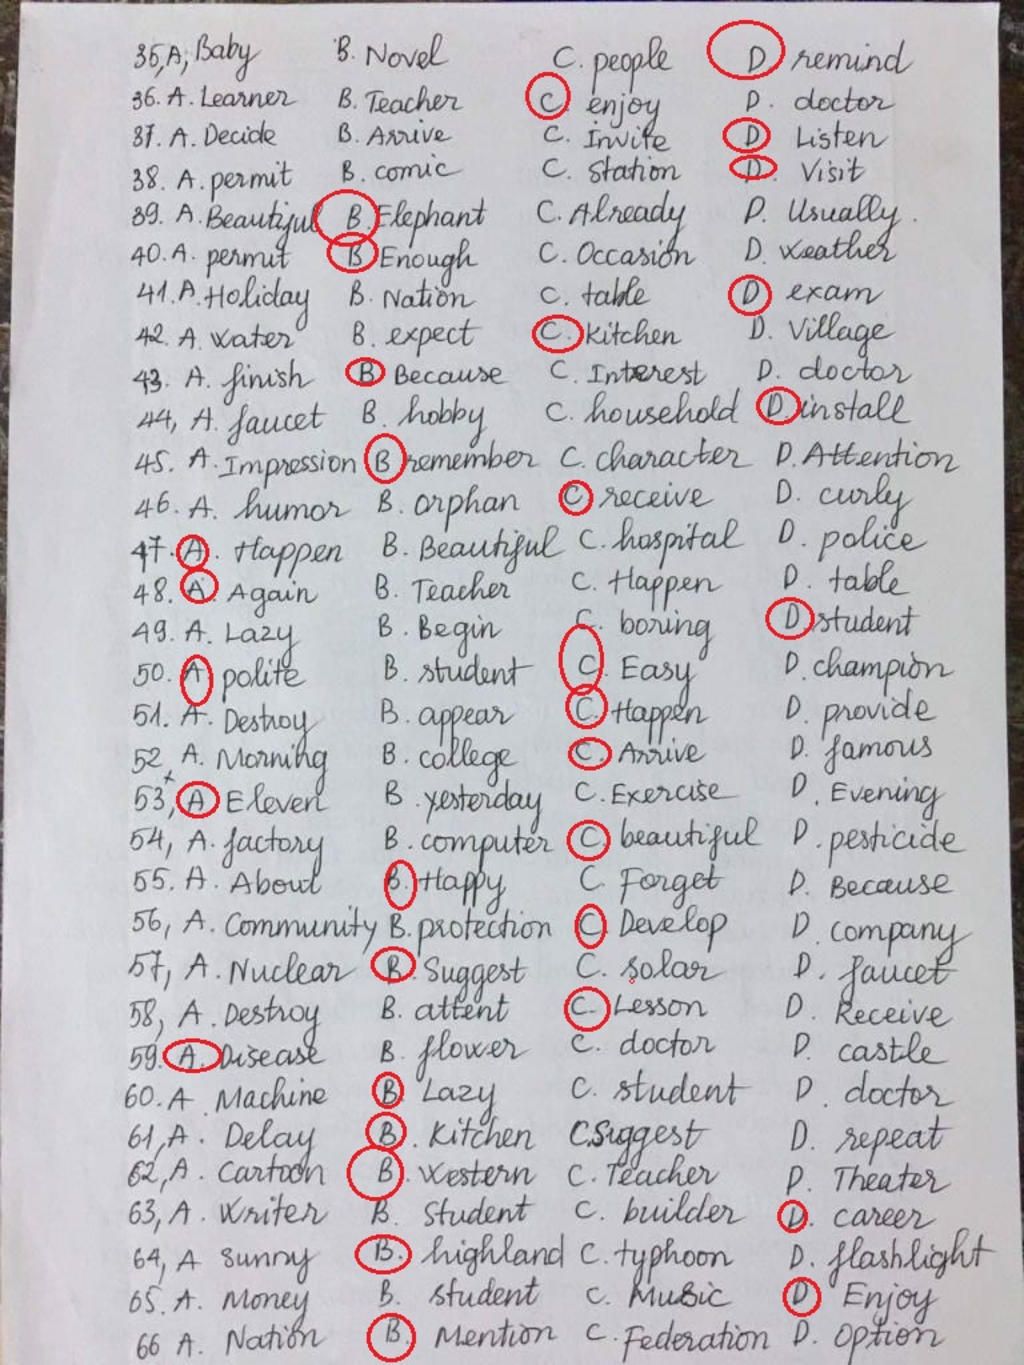 35, A, Baby B. Novel C. people D. remind
36. A. Learner B. Teacher C. enjoy D. doctor
37. A. Decide B. Arrive C. Invite D. Listen
38. A. permit B. comic C. Station D. Visit
39. A. Beautiful B. Elephant C. Already D. Usually.
40. A. permit B. Enough C. Occasion D. Weather
41. A. Holiday B. Nation C. table D. exam
42. A. Water B. expect C. Kitchen D. Village
43. A. finish B. Because C. Interest D. doctor
44, A. faucet B. hobby C. household D. install
45. A. Impression B. remember C. character D. Attention
46. A. humor B. orphan C. receive D. curly
47. A. Happen B. Beautiful C. hospital D. police
48. A. Again B. Teacher C. Happen D. table
49. A. Lazy B. Begin C. boring D. student
50. A. polite B. student C. Easy D. champion
51. A. Destroy B. appear C. Happen D. provide
52 A. Morning B. college C. Arrive D. famous
53, A Eleven B. yesterday C. Exercise D. Evening
54, A. factory B. computer C. beautiful D. pesticide
55. A. About B. Happy C. Forget D. Because
56, A. Community B. protection C. Develop D. company
57, A. Nuclear B. Suggest C. solar D. faucet
58, A. Destroy B. attent C. Lesson D. Receive
59. A. Disease B. flower C. doctor D. castle
60. A. Machine B. Lazy C. student D. doctor
61, A. Delay B. Kitchen C. Suggest D. repeat
62, A. Cartoon B. Western C. Teacher D. Theater
63, A. Writer B. Student C. builder D. career
64, A Sunny B. highland C. typhoon D. flashlight
65. A. Money B. student C. Music D. Enjoy
66 A. Nation B. Mention C. Federation D. Option